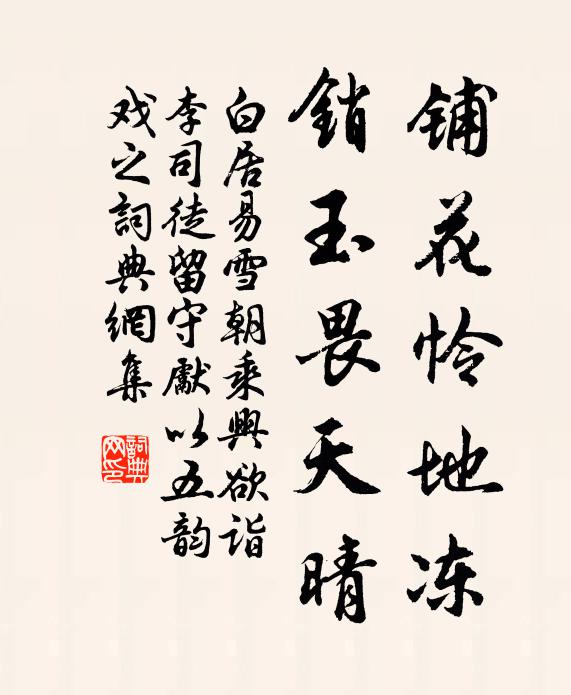 铺花怜地冻
銷玉畏天晴
白居易雪朝乘興欲诣
李司徒留守獻以五韵
戏之詞典網集
詞典
网印